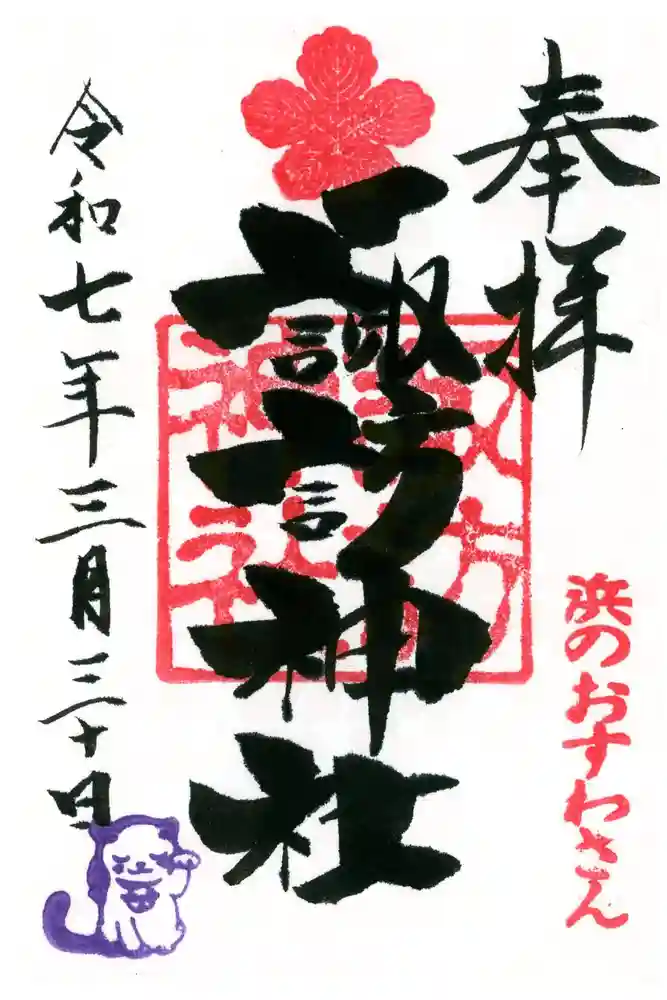 奉拝
諏訪神社
諏訪神社
浜のおすわさん
令和七年三月三十日